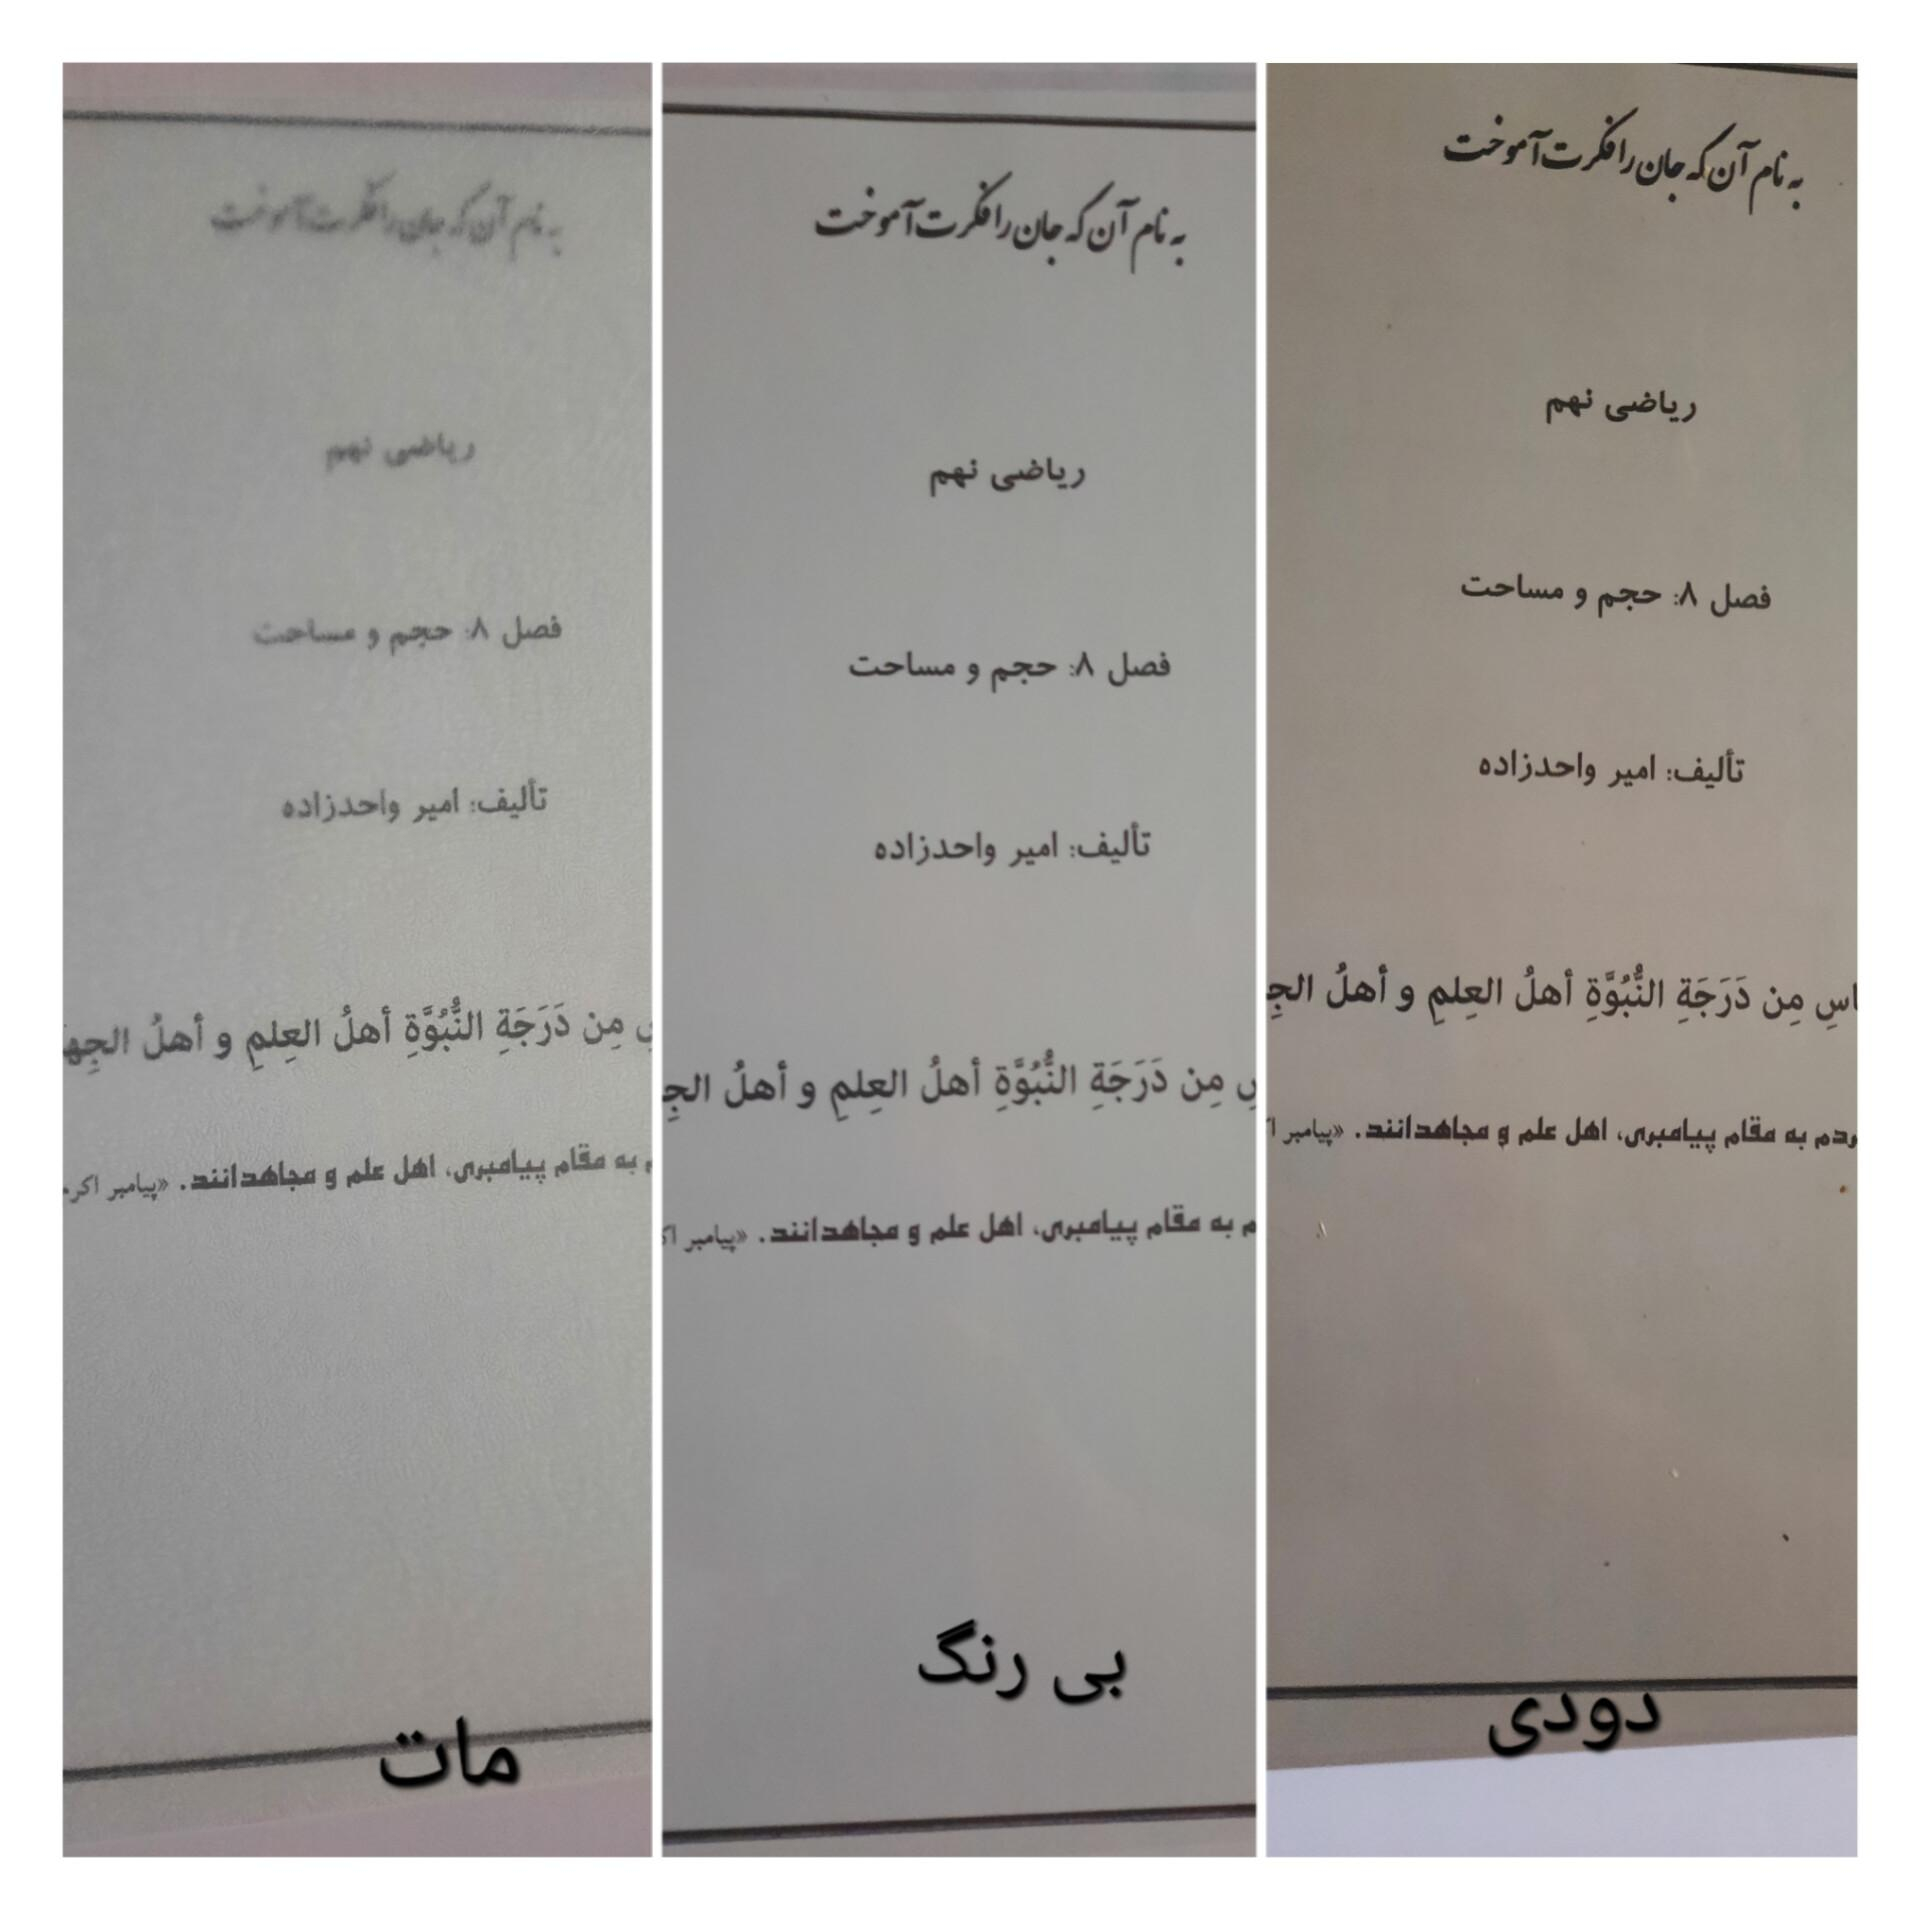 به نام آن که جان را فکرت آموخت
ریاضی نهم
فصل ۸: حجم و مساحت
تألیف: امیر واحدزاده
مِن دَرَجَةِ النُّبُوَّةِ أهلُ العِلمِ و أهلُ الجِها
به مقام پیامبری، اهل علم و مجاهدانند. «پیامبر اکر
مات
به نام آن که جان را فکرت آموخت
ریاضی نهم
فصل ۸: حجم و مساحت
تألیف: امیر واحدزاده
سِ مِن دَرَجَةِ النُّبُوَّةِ أهلُ العِلمِ و أهلُ الجِ
م به مقام پیامبری، اهل علم و مجاهدانند. «پیامبر اک
بی رنگ
به نام آن که جان را فکرت آموخت
ریاضی نهم
فصل ۸: حجم و مساحت
تألیف: امیر واحدزاده
اسِ مِن دَرَجَةِ النُّبُوَّةِ أهلُ العِلمِ و أهلُ الجِ
ردم به مقام پیامبری، اهل علم و مجاهدانند. «پیامبر ا
دودی